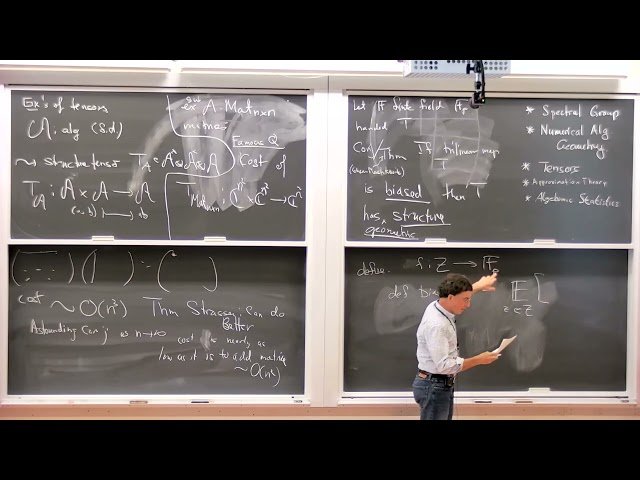 Ex's of tensors
A : alg (f.d)
⇝ structure tensor T_A ∈ A*⊗A*⊗A
T_A : A × A → A
(a,b) ↦ ab
ex A = Mat_n×n
matrices
Famous Q
Cost of
T_Mat_n×n : C^n² × C^n² → C^n²
( ) ( ) = ( )
cost ~ O(n³)
Thm Strassen: Can do
Better
Astounding Conj as n→∞
cost is nearly as
low as it is to add matrices
~ O(n²)
Let F finite field F_p
handed T
Conj/Thm If trilinear map
T
is biased then T
has structure
geometric
* Spectral Group
* Numerical Alg
Geometry
* Tensors
* Approximation Theory
* Algebraic Statistics
define. f : Z → F
def
E [
z ∈ Z